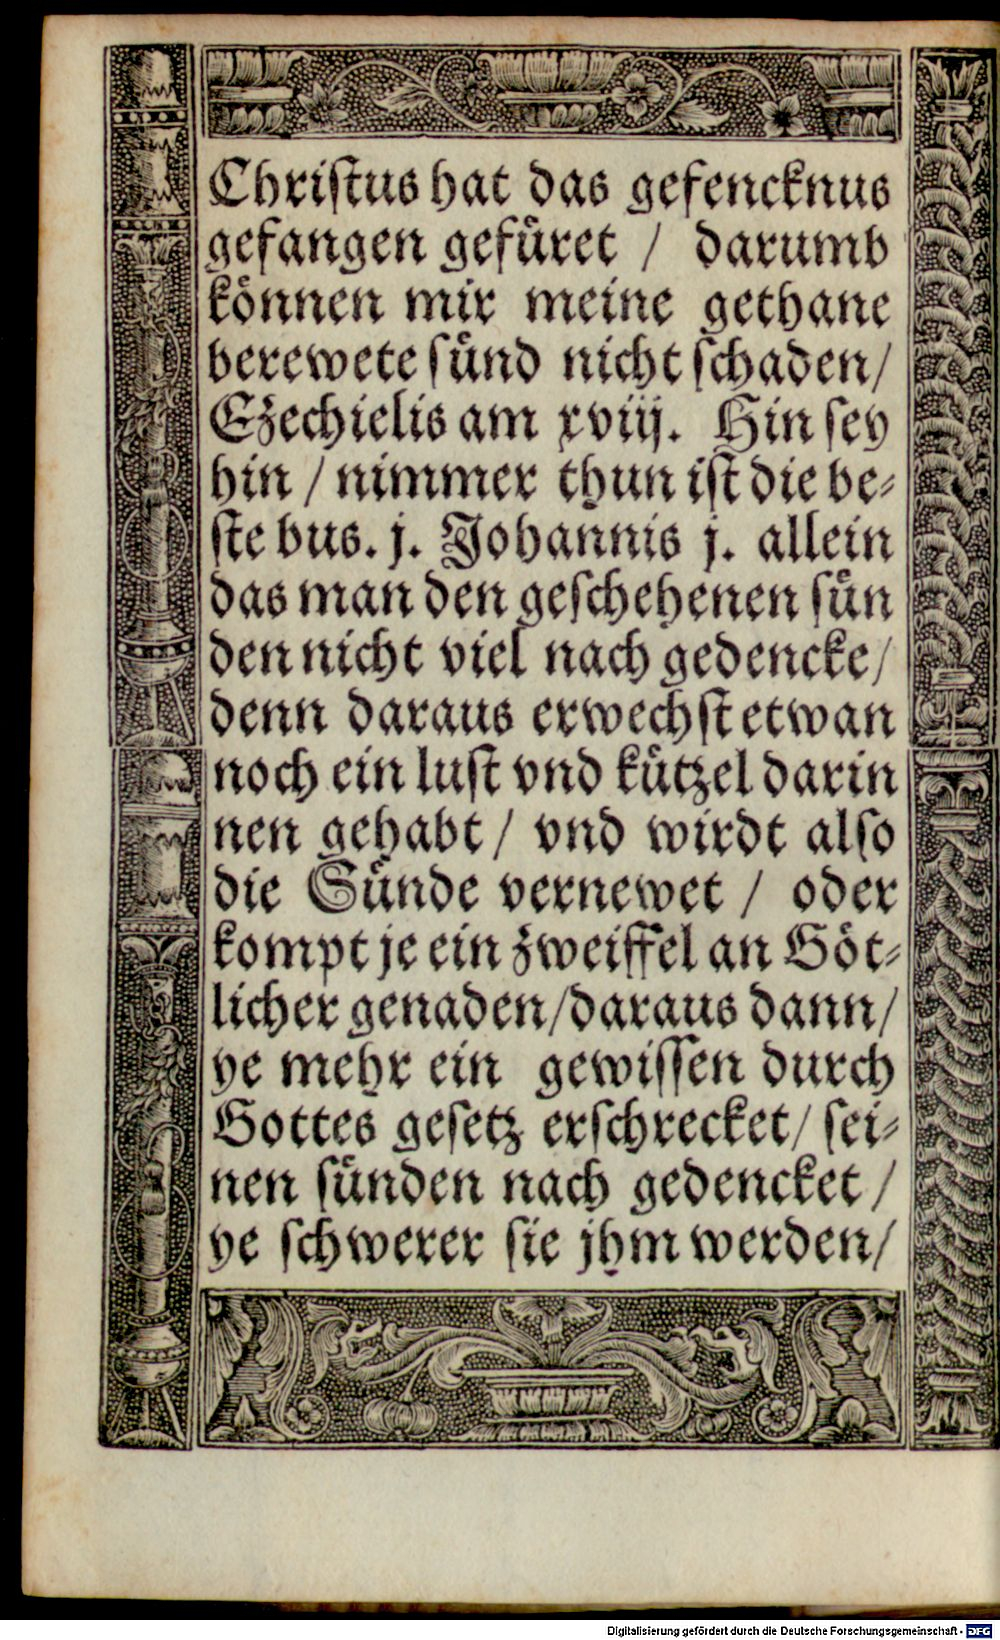 Christus hat das gefencknus
gefangen gefüret / darumb
können mir meine gethane
berewete sünd nicht schaden/
Ezechielis am xviij. Hin sey
hin / nimmer thun ist die be⸗
ste bus. j. Johannis j. allein
das man den geschehenen sün
den nicht viel nach gedencke/
denn daraus erwechst etwan
noch ein lust vnd kützel darin
nen gehabt / vnd wirdt also
die Sünde vernewet / oder
kompt je ein zweiffel an Göt⸗
licher genaden/daraus dann/
ye mehr ein gewissen durch
Gottes gesetz erschrecket/ sei⸗
nen sünden nach gedencket /
ye schwerer sie jhm werden/
Digitalisierung gefördert durch die Deutsche Forschungsgemeinschaft - DFG